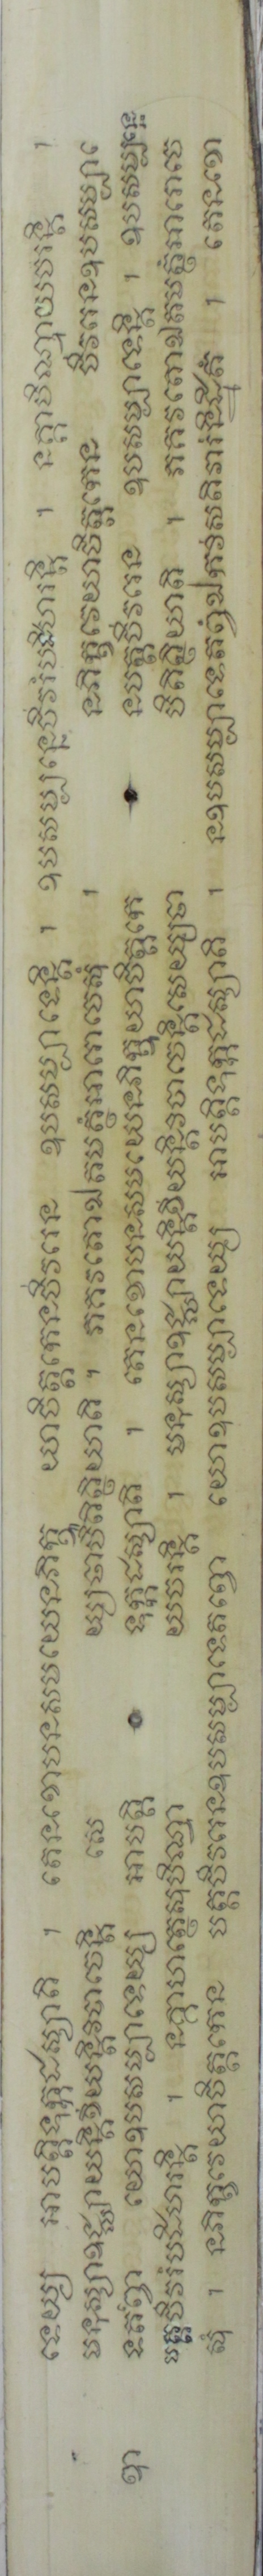 ទេយ្យ អាបត្តិទុក្កដស្សាតិ ។ តេនខោបនសមយេនភិក្ខូ យាចិត្តកេនចីវរេន ឧបសម្បាទេន្តិ ។ ឧបសម្បន្នេចីវរំបដិហរន្តិ ។ នគ្គាបិណ្ឌាយចរន្តិ ។
មនុស្សាឧជ្ឈាយន្តិខីយន្តិវិបាចេន្តិ សេ យ្យថាបិតិត្ថិយាតិ ។ ភគវតោឯតមត្ថំអារោចេសុំ ។ នភិក្ខវេយាចិត្តកេន ចីវរេនឧបសម្បាទេ
តព្វោ យោឧបសម្បាទេយ្យ អាបត្តិ ទុក្កដស្សាតិ ។ តេនខោបនសមយេនភិក្ខូយាចិត្តកេ នបត្តចីវរេន ឧបសម្បាទេន្តិ ។ ឧបសម្បន្នេ
បត្តចីវរំបដិហរន្តិ ។ នគ្គាហត្ថេសុបិណ្ឌា យចរន្តិ ។ មនុស្សាឧជ្ឈាយន្តិខីយន្តិវិបាចេន្តិសេយ្យថា បិតិត្ថិយាតិ ។ ភគវតោឯតមត្ថំអារោចេ
សុំ ។ នភិក្ខវេយាចិត្តកេន បត្តចីវរេនឧបសម្បាទេតព្វោ យោឧបសម្បាទេយ្យ អាបត្តិទុក្កដស្សាតិ ។ នឧបសម្បាទេតព្វំឯកវំសតិវារំនិដ្ឋិតំ ។ តេនខោ